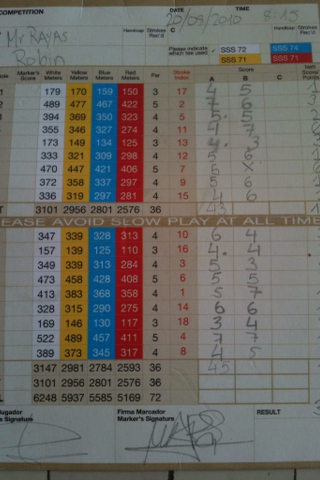 COMPETITION DATE TIME
20/09/2010 8:15
Handicap Strokes Rec'd C Handicap Strokes Rec'd
Mr RAYAS
Please indicate which tee used SSS 72 SSS 74
Robin SSS 71 SSS 71
Marker's Score White Meters Yellow Meters Blue Meters Red Meters Par Stroke Index Score Nett Score Points
A B C
179 170 159 150 3 17 4 5
489 477 467 422 5 2 7 6
394 369 350 323 4 5 5 5
355 346 327 274 4 11
173 149 134 125 3 13 4 3
333 321 309 298 4 12 6
470 447 421 406 5 7 X
372 358 337 297 4 9 6
336 319 297 281 4 15 4 6
3101 2956 2801 2576 36 43
EASE AVOID SLOW PLAY AT ALL TIME
347 339 328 313 4 10 6 4
157 139 125 110 3 16 4 4
349 339 313 284 4 3 5 3
473 458 428 408 5 6 5 5
413 383 368 358 4 1 5 7
328 315 290 275 4 14 6 6
169 146 130 117 3 18 3 4
522 489 457 411 5 4 7 7
389 373 345 317 4 8 4 5
3147 2981 2784 2593 36 45
3101 2956 2801 2576 36
6248 5937 5585 5169 72
ugador Firma Marcador RESULT
s Signature Marker's Signature